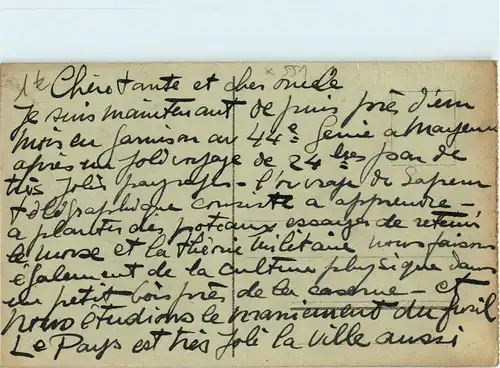 1k x 551
Chère tante et cher oncle
Je suis maintenant depuis près d'un
mois en garnison au 44e Génie a Mayenne
après un joli voyage de 24 hres par de
très jolis paysages - l'ouvrage du Sapeur
télégraphique consiste a apprendre -
a planter des poteaux, essayer de retenir
le morse et la théorie militaire nous faisons
également de la culture physique dans
un petit bois près de la caserne - et
nous étudions le maniement du fusil
Le Pays est très joli la ville aussi